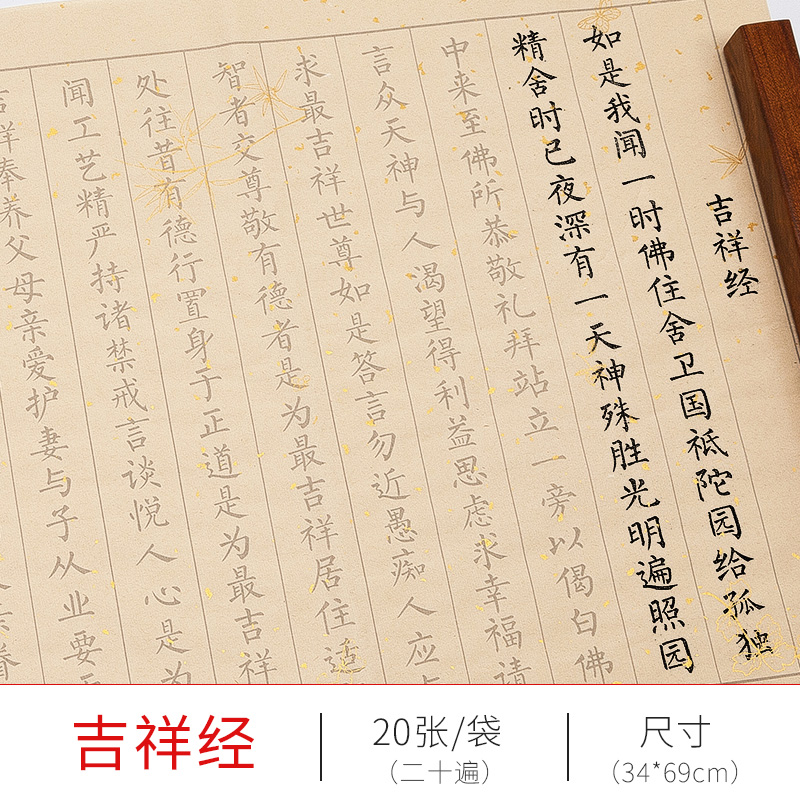 吉祥经
如是我闻一时佛住舍卫国祗陀园给孤独
精舍时已夜深有一天神殊胜光明遍照园
中来至佛所恭敬礼拜站立一旁以偈白佛
言众天神与人渴望得利益思虑求幸福请
求最吉祥世尊如是答言勿近愚痴人应与
智者交尊敬有德者是为最吉祥居住适
处往昔有德行置身于正道是为最吉祥
闻工艺精严持诸禁戒言谈悦人心是为
吉祥奉养父母亲爱护妻与子从业要无
吉祥经
20张/袋
（二十遍）
尺寸
（34*69cm）